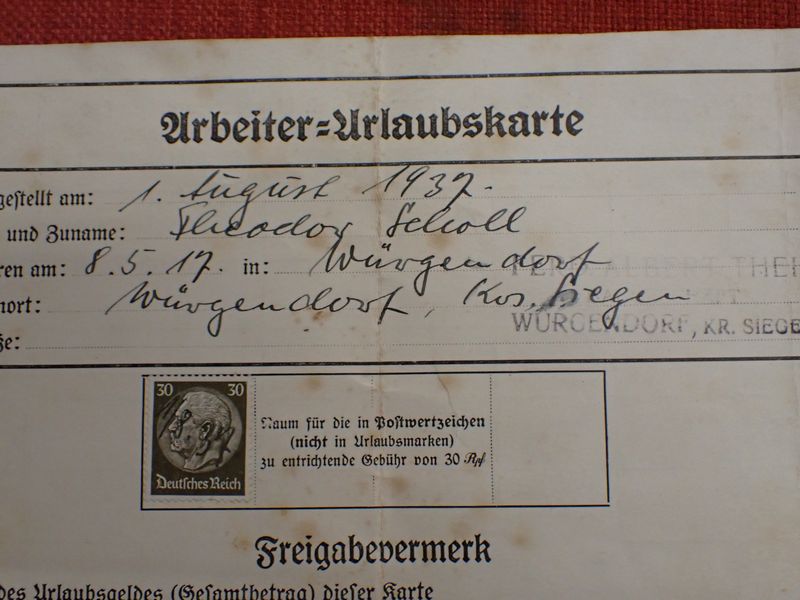 Arbeiter-Urlaubskarte
gestellt am: 1. August 1937.
und Zuname: Theodor Scholl
ren am: 8.5.17. in: Würgendorf
ALBERT THE
nort: Würgendorf, Krs. Siegen
WÜRGENDORF, KR. SIEGE
ße:
30 30
Deutsches Reich
Raum für die in Postwertzeichen
(nicht in Urlaubsmarken)
zu entrichtende Gebühr von 30 Rpf
Freigabevermerk
des Urlaubsgeldes (Gesamtbetrag) dieser Karte